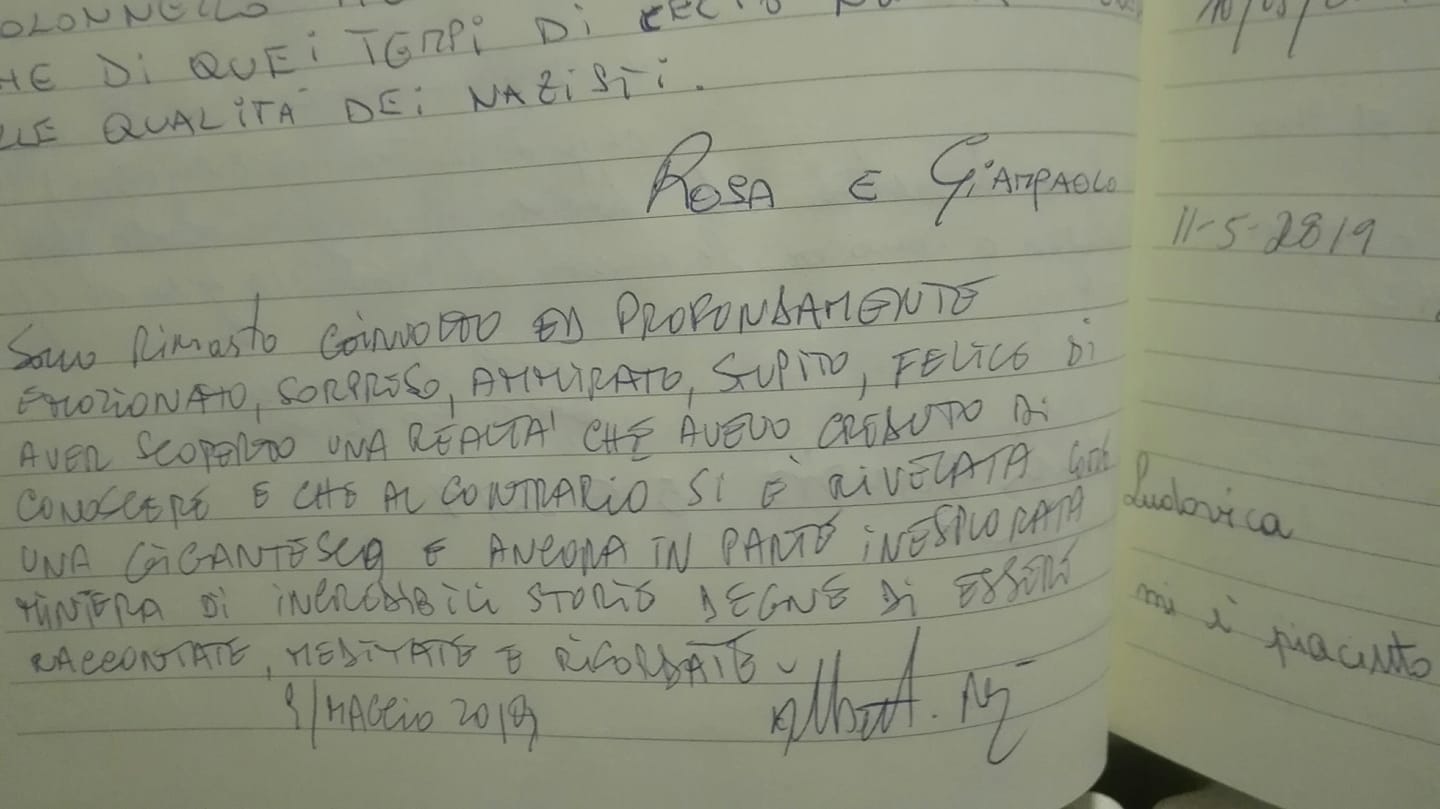 OLONNELLO
HE DI QUEI TEMPI DI
LLE QUALITÀ DEI NAZISTI.
ROSA E GIAMPAOLO
Sono Rimasto COINVOLTO ED PROFONDAMENTE
EMOZIONATO, SORPRESO, AMMIRATO, STUPITO, FELICE DI
AVER SCOPERTO UNA REALTA' CHE AVEVO CREDUTO DI
CONOSCERE E CHE AL CONTRARIO SI È RIVELATA COME
UNA GIGANTESCA E ANCORA IN PARTE INESPLORATA
MINIERA DI INCREDIBILI STORIE DEGNE DI ESSERE
RACCONTATE, MEDITATE E RICORDATE
9/MAGGIO 2019
11-5-2819
Ludovica
mi è piaciuto